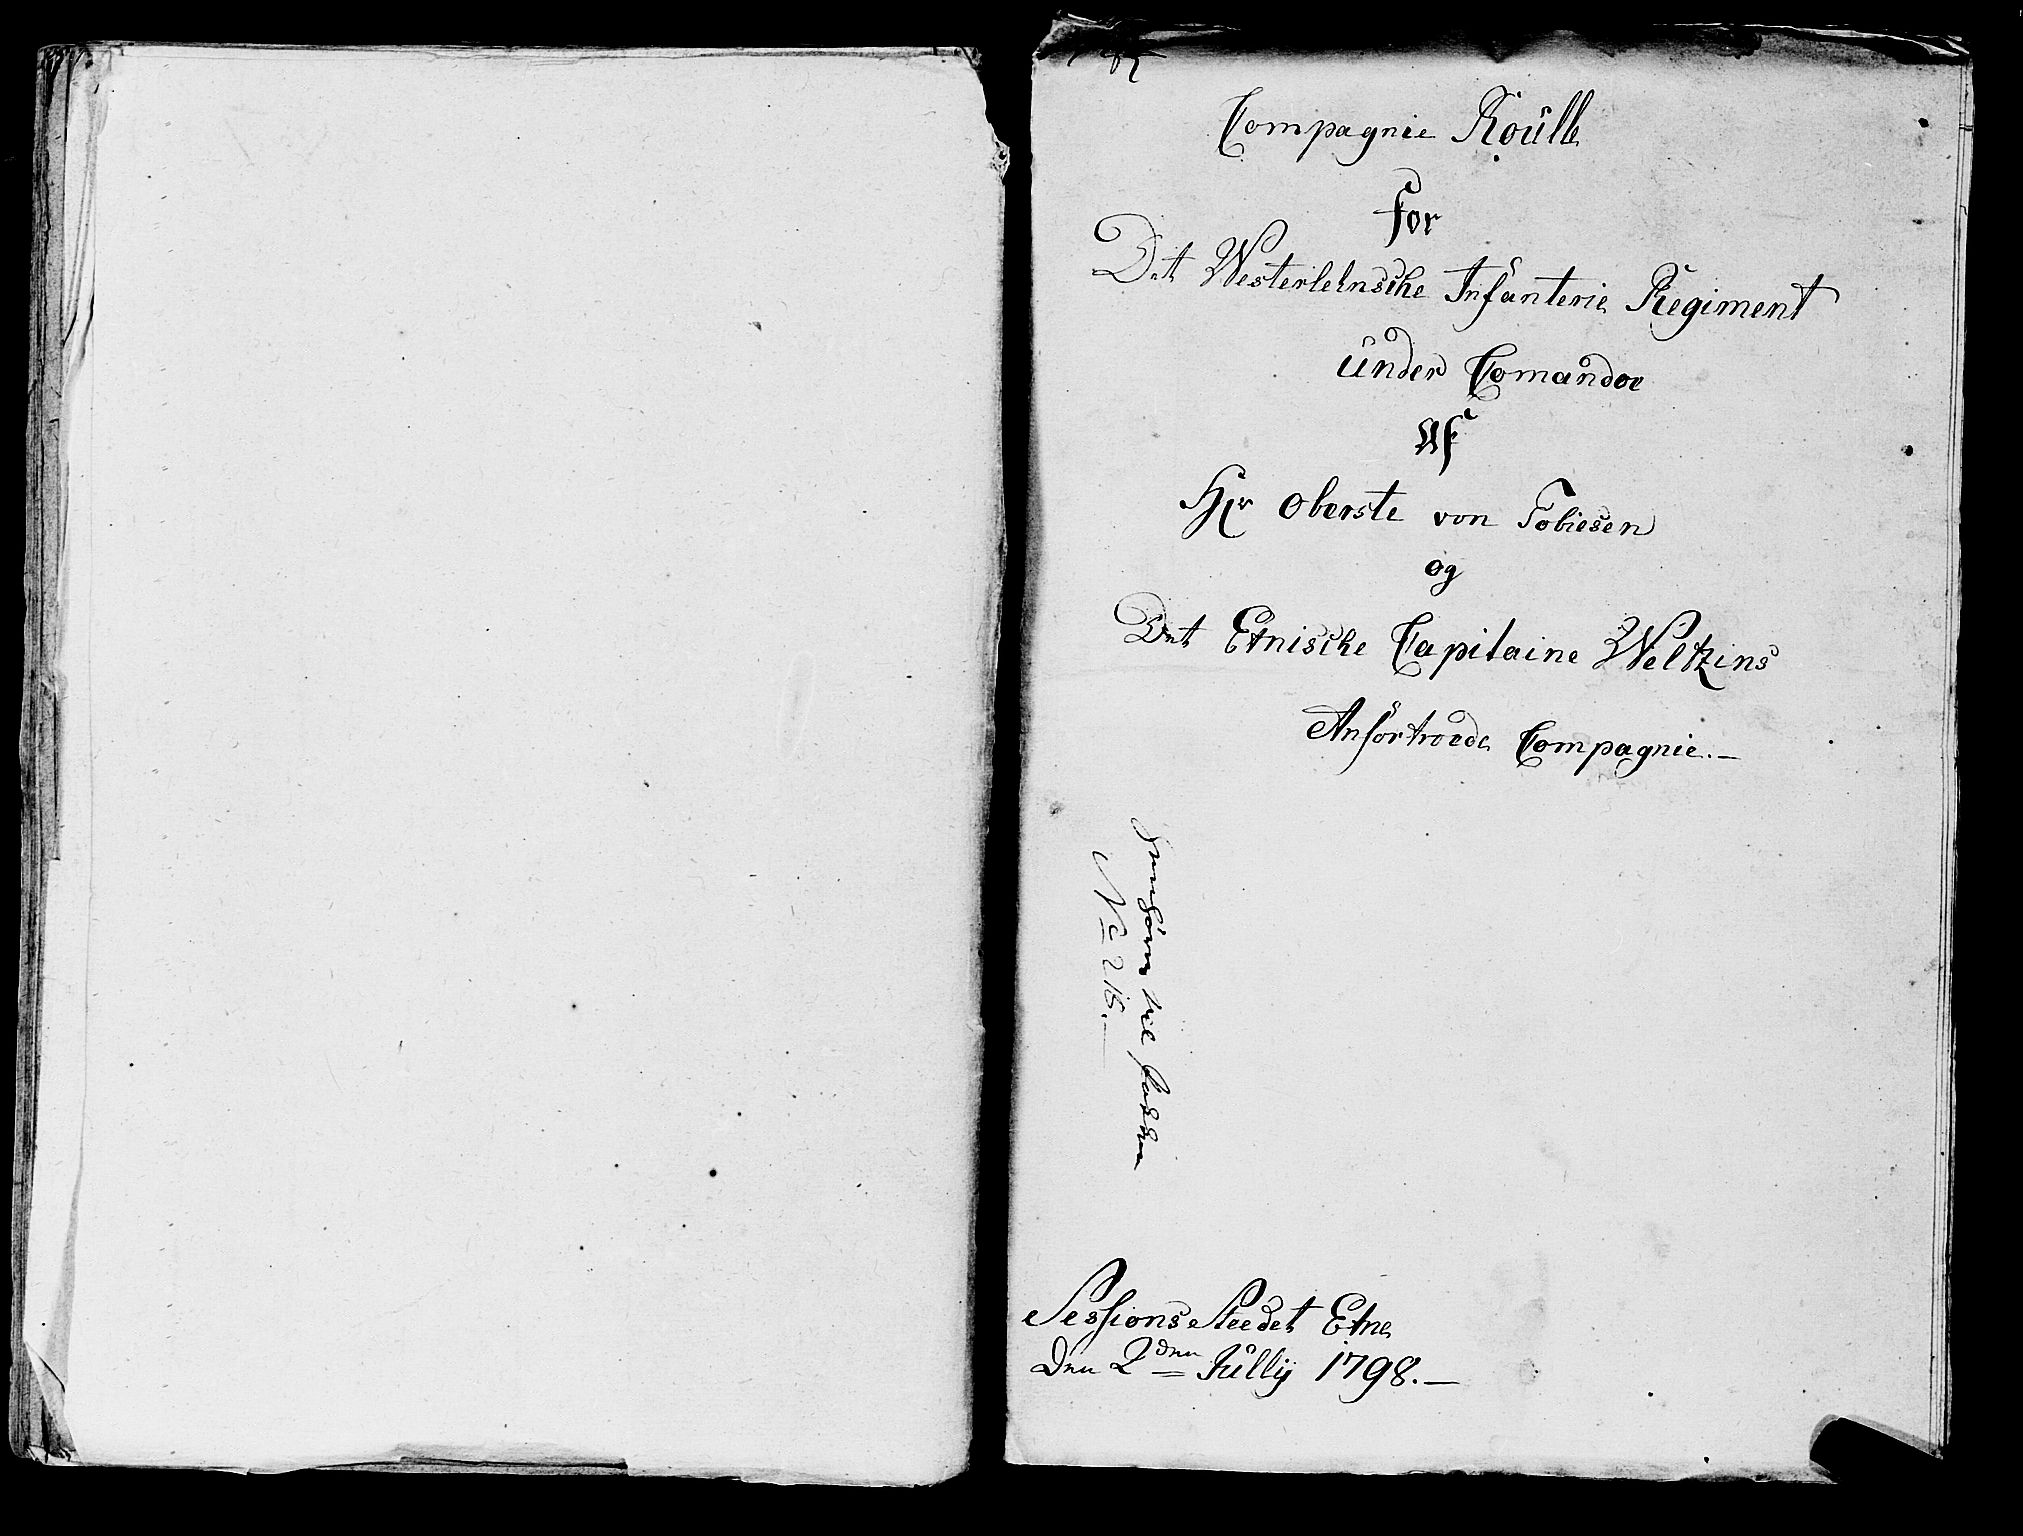 Compagnie Roulle
for
Det Westerlehnsche Infanterie Regiment
under Comandoe
Af
Hr Oberste von Tobiesen
og
Det Etnische Capitaine Weltzins
Anfortroede Compagnie.—
til
No 216.—
Sessions Steedet Etne
Den 2den Jully 1798.—